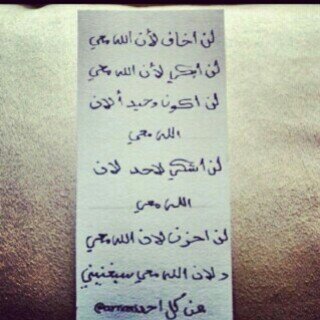 لن اخاف لأن الله معي
لن أبكي لأن الله معي
لن أكون وحيد أ لان
الله معي
لن أشكي لاحد لان
الله معي
لن احزن لان الله معي
ولان الله معي سيغنيني
عن كل احد